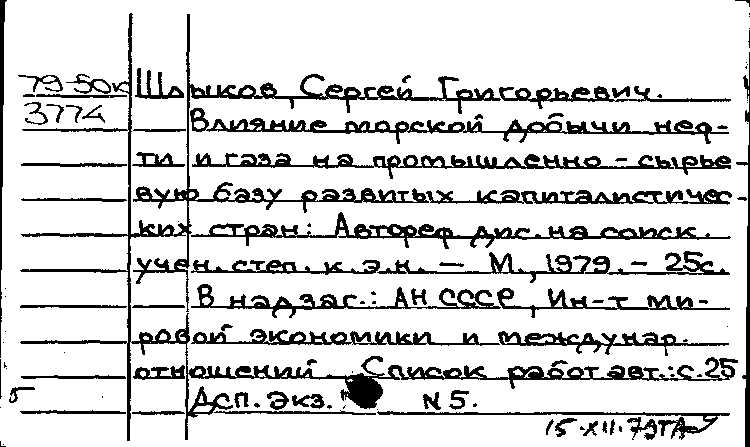 79-50к Шлыков, Сергей Григорьевич.
3774 Влияние морской добычи неф-
ти и газа на промышленно-сырье-
вую базу развитых капиталистичес-
ких стран: Автореф дис. на соиск.
учен. степ. к. э. н. — М., 1979. — 25с.
В надзаг.: АН СССР, Ин-т ми-
ровой экономики и междунар.
отношений. Список работ авт.: с. 25.
5 Дсп. Экз. N 5.
15.XII.79